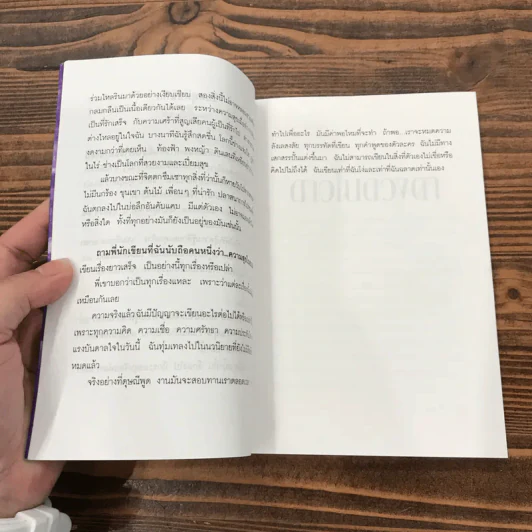 ร่วมไหลรินมาด้วยอย่างเงียบเชียบ สองสิ่งนี้ไม่อาจ
กลมกลืนเป็นเนื้อเดียวกันได้เลย ระหว่างความสุข
เป็นที่รักเสร็จ กับความเศร้าที่สูญเสียคนผู้เป็นที่รักไป
ต่างไหลอยู่ในใจฉัน บางนาทีฉันรู้สึกสดชื่น โลกนี้
งดงามกว่าที่เคยเห็น ท้องฟ้า พงหญ้า
ในไร่ ช่างเป็นโลกที่สวยงามและเปี่ยมสุข
แล้วบางขณะที่จิตตกซึมเซาทุกสิ่งที่ว่านั้นก็หายวับ
ไม่มีนกร้อง ขุนเขา ต้นไม้ เพื่อนๆ ที่น่ารัก
ฉันตกลงไปในบ่อลึกอันคับแคบ มีแต่ตัวเอง
หรือสิ่งใด ทั้งที่ทุกอย่างมันก็ยังเป็นอยู่ของมันเช่นนั้น
ถามพี่นักเขียนที่ฉันนับถือคนหนึ่งว่า..ความสุข
เขียนเรื่องยาวเสร็จ เป็นอย่างนี้ทุกเรื่องหรือเปล่า
พี่เขาบอกว่าเป็นทุกเรื่องแหละ เพราะว่าแต่ละเรื่อง
เหมือนกันเลย
ความจริงแล้วฉันมีปัญญาจะเขียนอะไรต่อไปได้
เพราะทุกความคิด ความเชื่อ ความศรัทธา
แรงบันดาลใจในวันนี้ ฉันทุ่มเทลงไปในนวนิยายที่
หมดแล้ว
จริงอย่างที่ดุษณีพูด งานมันจะสอบทานเราตลอด
ทำไปเพื่ออะไร มันมีค่าพอไหมที่จะทำ ถ้าพอ..เราจะหมดความ
ลังเลสงสัย ทุกบรรทัดที่เขียน ทุกคำพูดของตัวละคร ฉันไม่มีทาง
เสกสรรปั้นแต่งขึ้นมา ฉันไม่สามารถเขียนในสิ่งที่ตัวเองไม่เชื่อหรือ
คิดไปไม่ถึงได้ ฉันเขียนเท่าที่ฉันโง่และเท่าที่ฉันฉลาดสถานนั้นเอง